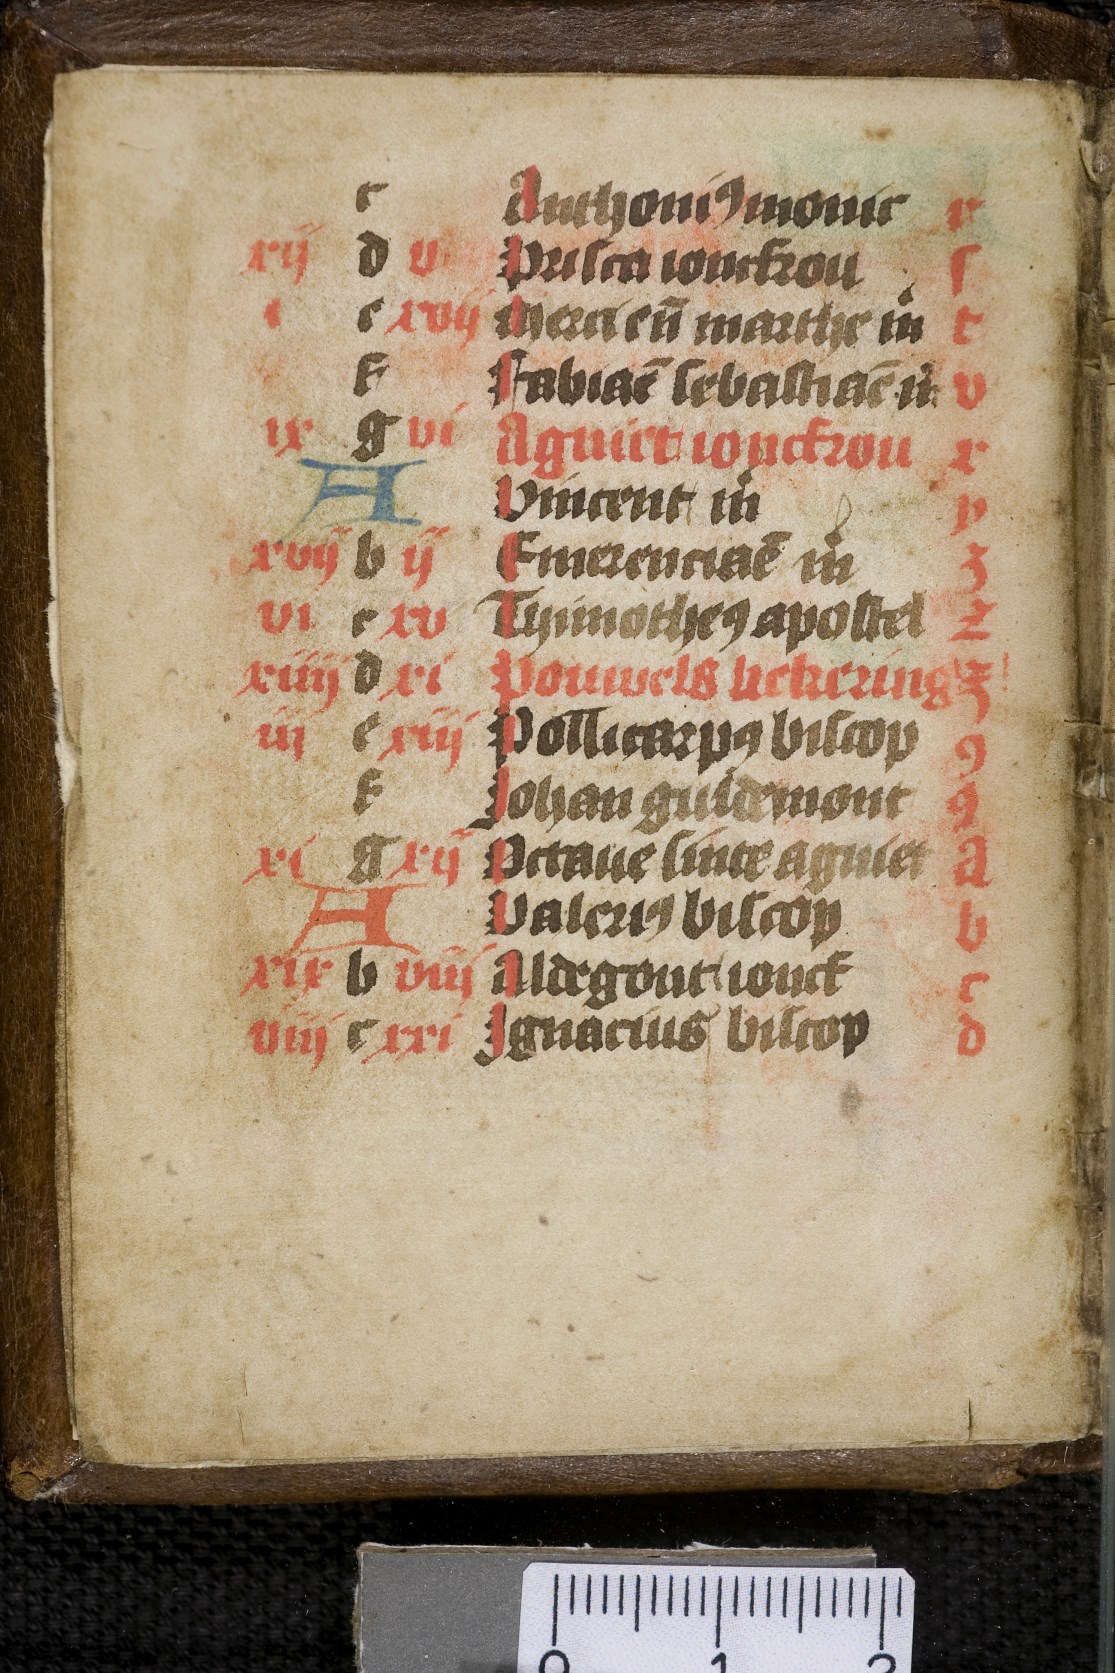 c Anthoniꝯ monic r
xij d v Prisca ioncfrou s
i e xvij Merci eñ marthe m̃ t
f Fabiaē sebastiaē m̃ v
ix g vi Agniet ioncfrou x
A Vincent m̃ y
xvij b ij Emerenciaē m̃ z
vi c xv Tymotheꝯ apostel z
xiiij d xi Pouwels bekering ꝫ
iij e xiiij Pollicarpꝯ biscop ꝯ
f Johan guldemont 9
xi g xij Octaue sinte agniet a
A Valeriꝯ biscop b
xix b viij Aldegont ioncf c
viij c xxi Ignacius biscop d
0 1 2